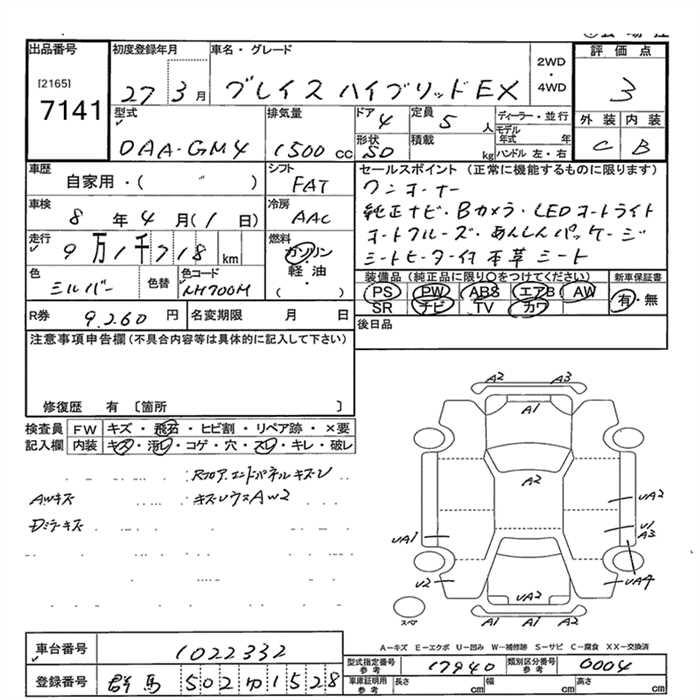 出品番号
[2165]
7141
初度登録年月
27 3月
車名・グレード
グレイス ハイブリッド EX
2WD
・
4WD
評価点
3
型式
DAA-GM4
排気量
1500 cc
ドア
4
定員
5 人
形状
SD
積載
kg
ディーラー・並行
モデル年式 年
ハンドル 左・右
外装 内装
C B
車歴
自家用・( 〃 )
車検
8 年 4 月 (1 日)
走行
9万1千718 km
色
シルバー
色替
色コード
NH700M
シフト
FAT
冷房
AAC
燃料
ガソリン
・軽・油
( )
セールスポイント (正常に機能するものに限ります)
ワンオーナー
純正ナビ・Bカメラ・LEDオートライト
オートクルーズ・あんしんパッケージ
シートヒーター付 本革シート
装備品 (純正品に限り○をつけてください)
PS PW ABS エアB AW
SR ナビ TV カワ
新車保証書
有・無
R券 9.260 円
名変期限 月 日
後日品
注意事項申告欄 (不具合内容等は具体的に記入して下さい)
修復歴 有 〔箇所 〕
検査員記入欄
FW キズ・飛石・ヒビ割・リペア跡・×要
内装 キズ・汚レ・コゲ・穴・スレ・キレ・破レ
Rフロア.エンドパネルキズU
AWキズ
キズしウスAW2
A2 A3
A1
A2
UA2
UA1
U1
A3
U2
UA4
UA2
A1 A1 A2
スペア
A-キズ E-エクボ U-凹み W-補修跡 S-サビ C-腐食 XX-交換済
車台番号
1022332
登録番号
群馬 502 ゆ 1528
型式指定番号 参考
17940
類別区分番号 参考
0004
車庫証明用 参考
長さ cm 幅 cm 高さ cm